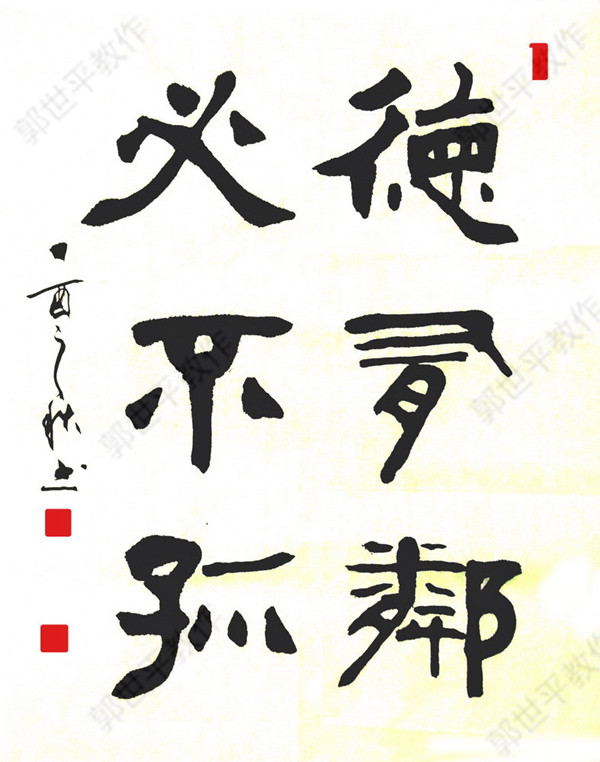 德有鄰
必不孤
酉之秋
郭世平教作
郭世平教作
郭世平教作
郭世平教作
郭世平教作
郭世平教作